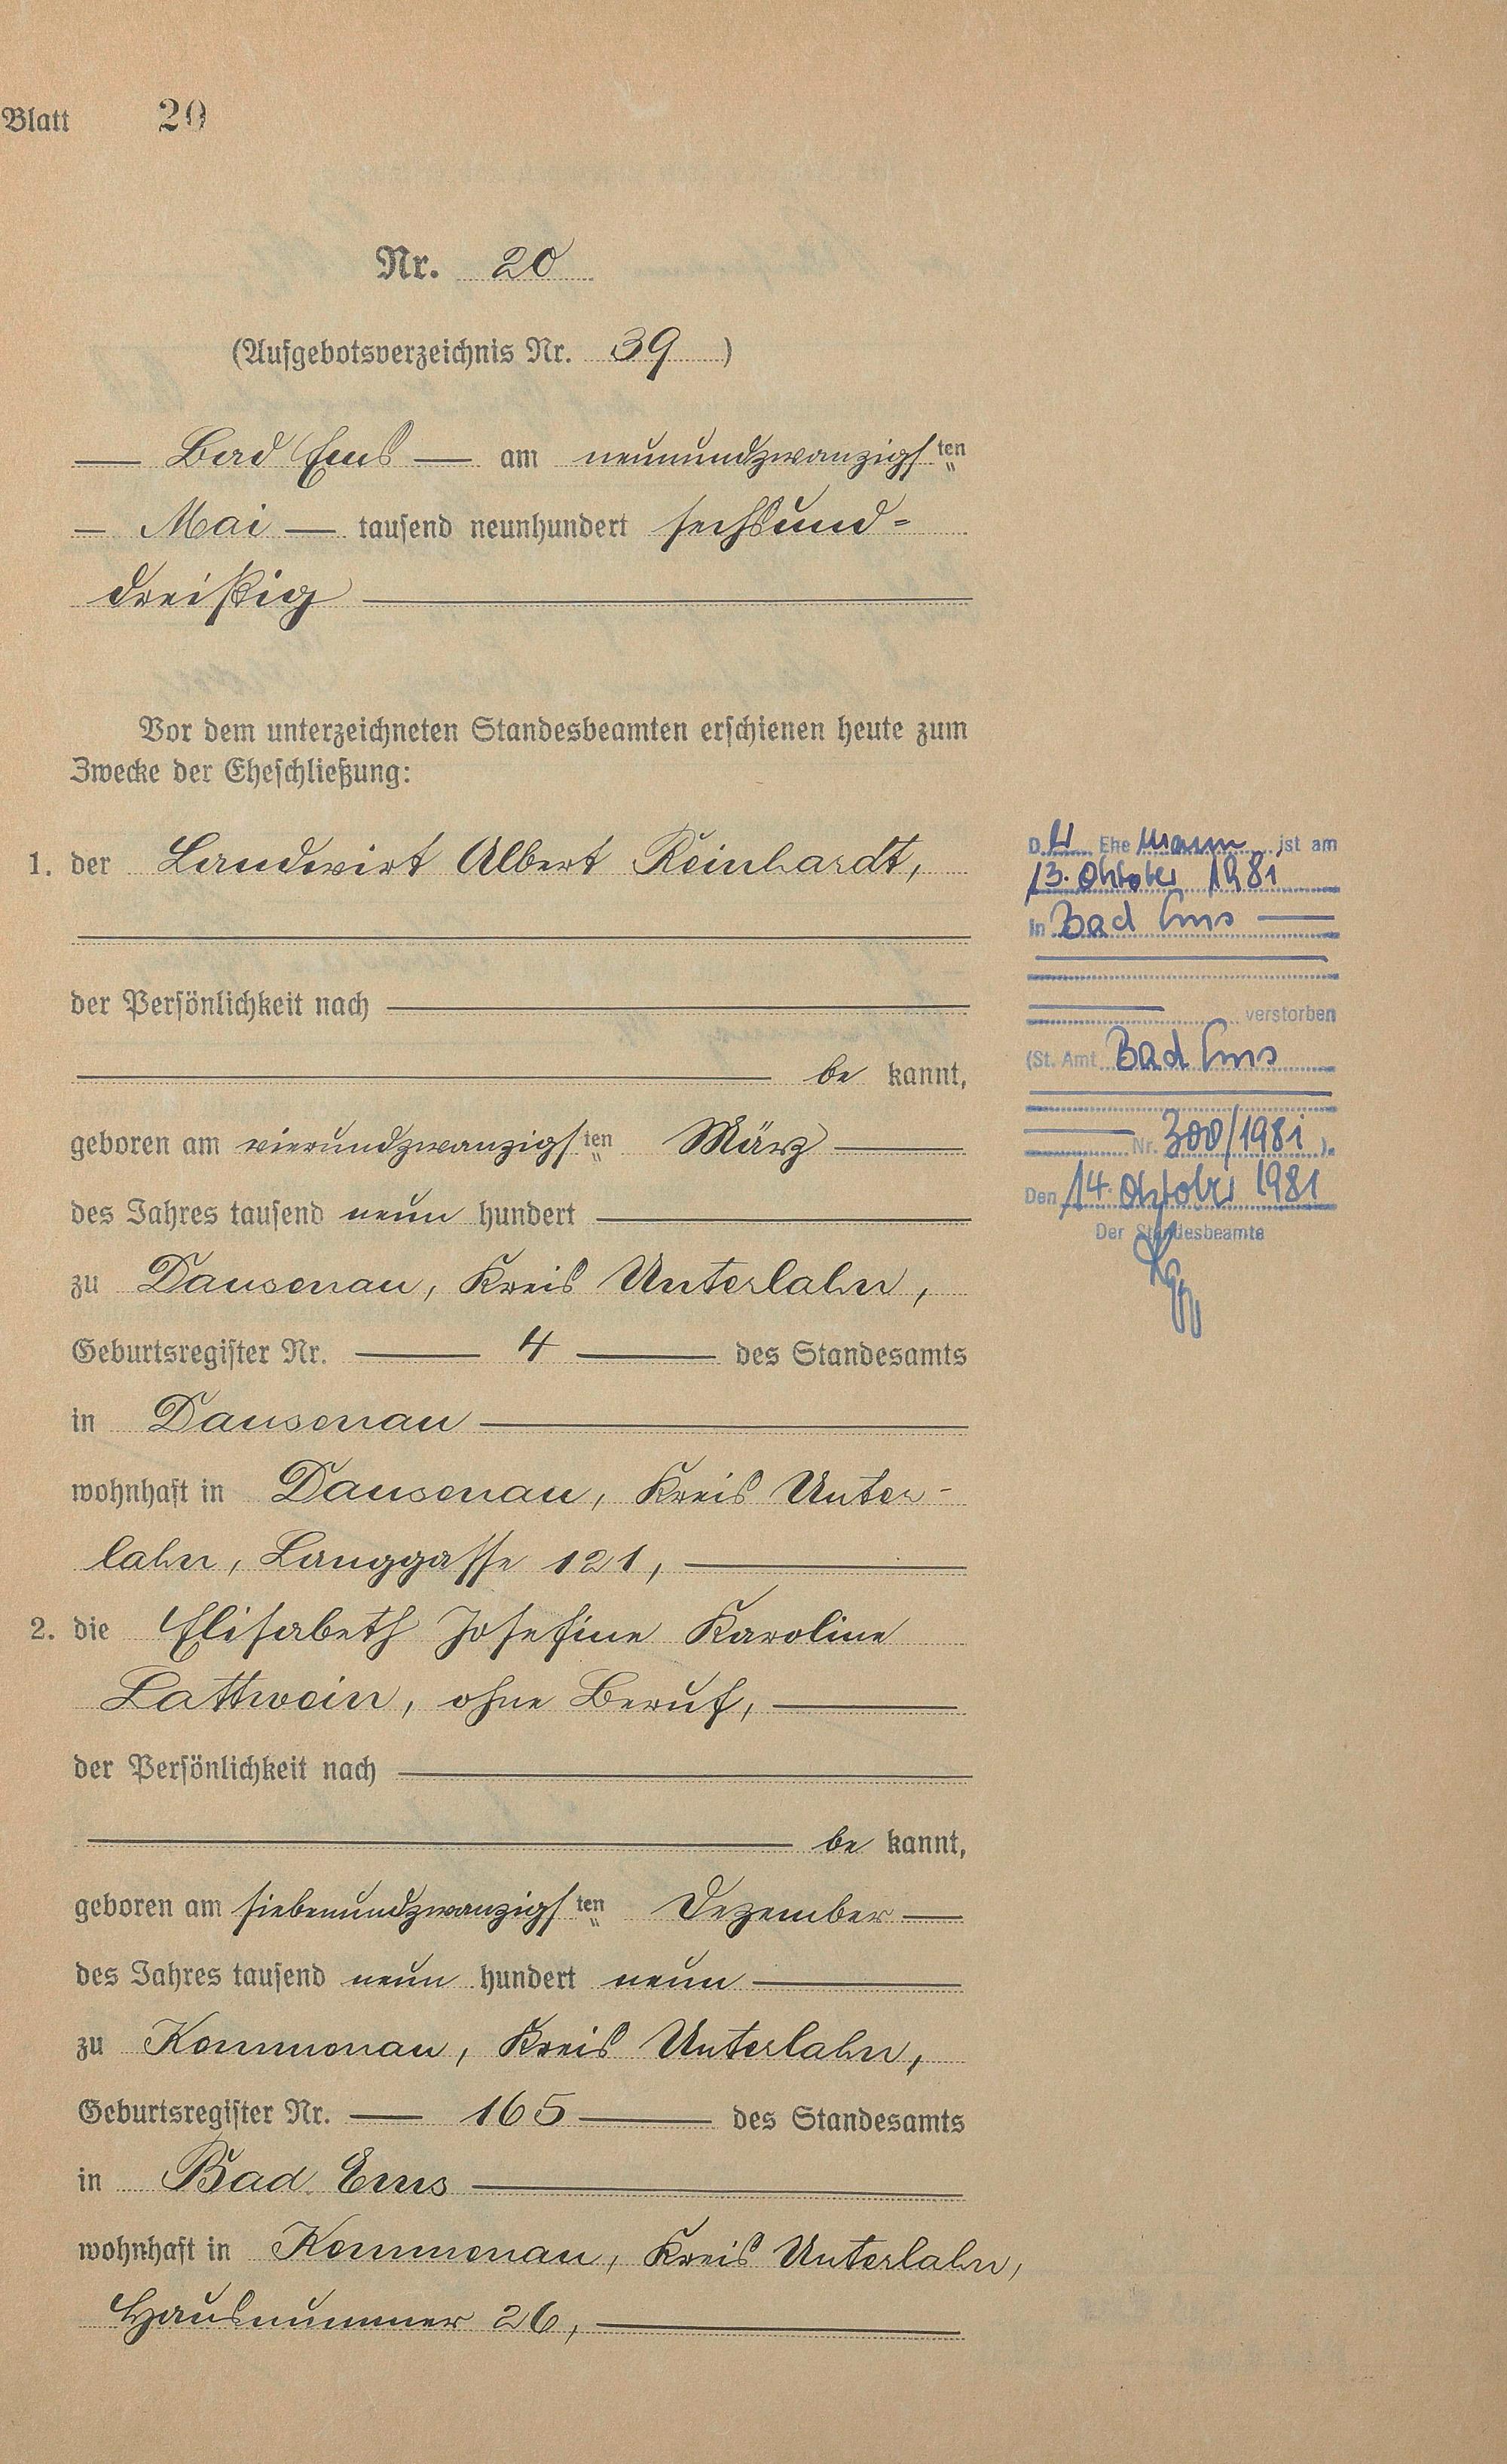 Blatt 20
Nr. 20
(Aufgebotsverzeichnis Nr. 39 )
— Bad Ems — am neunundzwanzigsten
— Mai — tausend neunhundert sechsund=
dreißig —
Vor dem unterzeichneten Standesbeamten erschienen heute zum
Zwecke der Eheschließung:
1. der Landwirt Albert Reinhardt,
der Persönlichkeit nach —
— be kannt,
geboren am vierundzwanzigsten März —
des Jahres tausend neun hundert —
zu Dausenau, Kreis Unterlahn,
Geburtsregister Nr. — 4 — des Standesamts
in Dausenau —
wohnhaft in Dausenau, Kreis Unter-
lahn, Langgasse 121, —
2. die Elisabeth Josefine Karoline
Lattwein, ohne Beruf, —
der Persönlichkeit nach —
— be kannt,
geboren am siebenundzwanzigsten Dezember —
des Jahres tausend neun hundert neun —
zu Kemmenau, Kreis Unterlahn,
Geburtsregister Nr. — 165 — des Standesamts
in Bad Ems —
wohnhaft in Kemmenau, Kreis Unterlahn,
Hausnummer 26, —
D. er Ehe mann ist am
13. Oktober 1981
in Bad Ems —
— verstorben
(St. Amt Bad Ems
— Nr. 300/1981 ).
Den 14. Oktober 1981
Der Standesbeamte